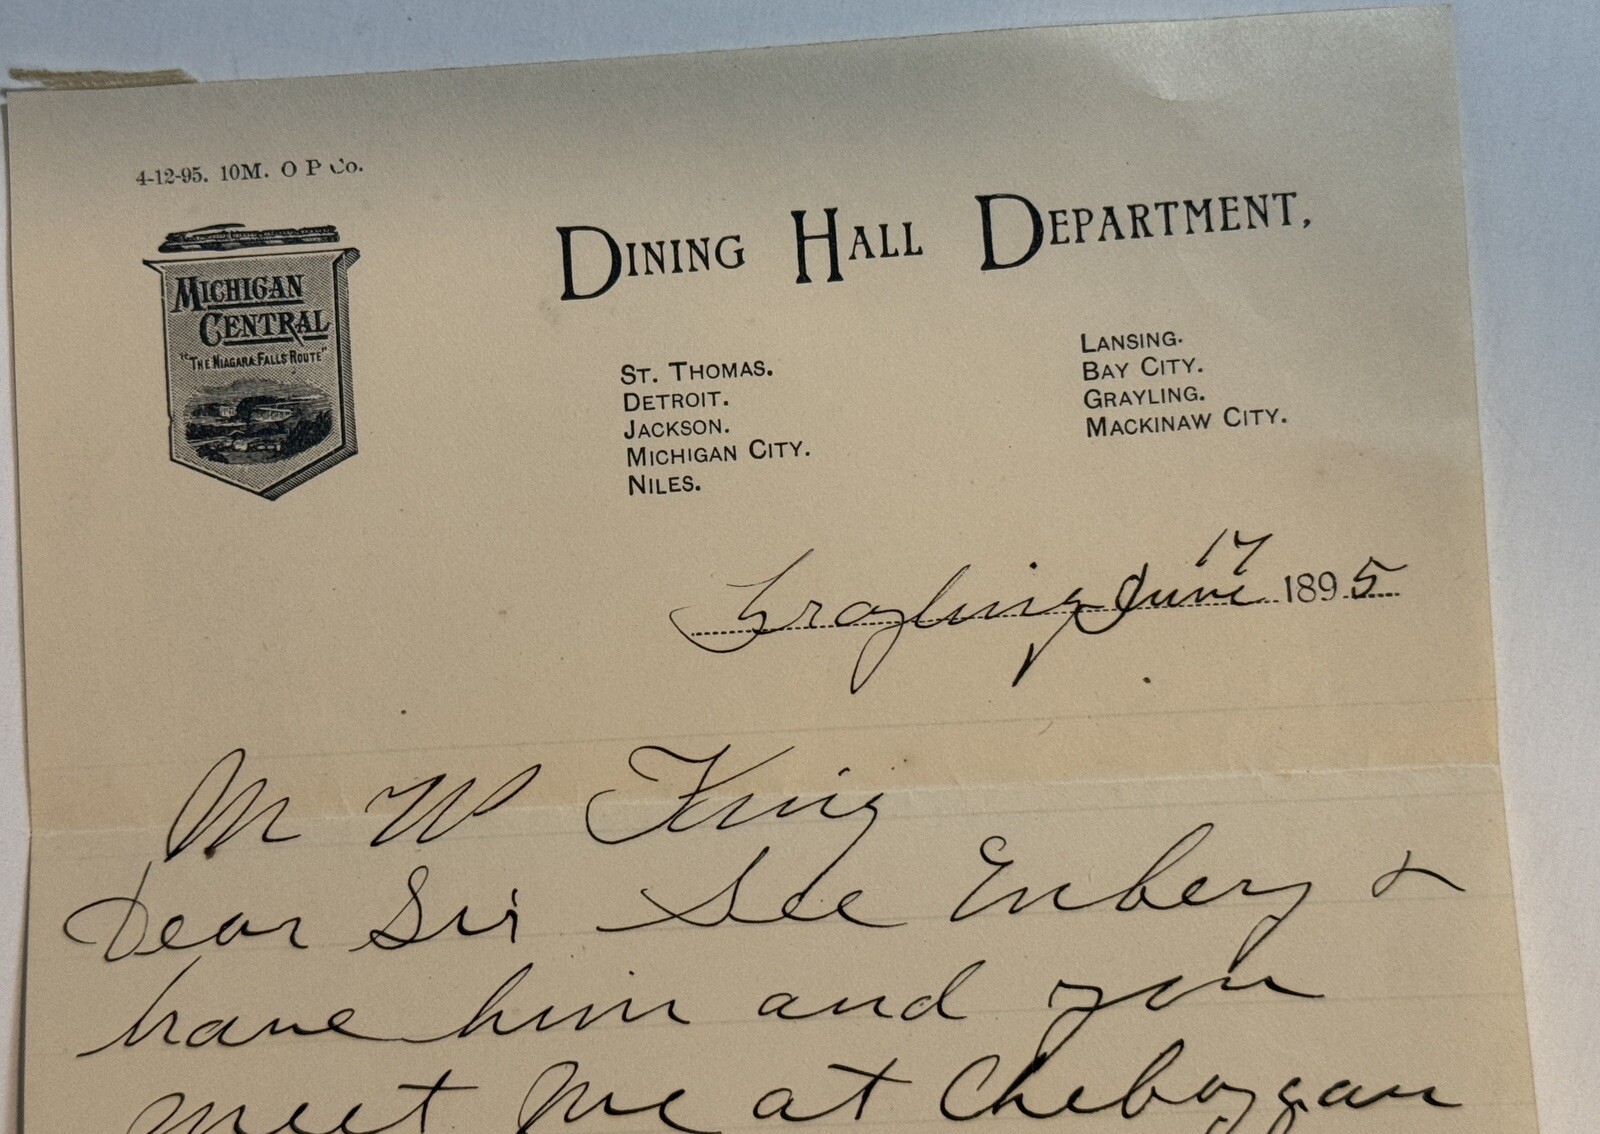 4-12-95. 10M. O P Co.
MICHIGAN
CENTRAL
"THE NIAGARA FALLS ROUTE"
DINING HALL DEPARTMENT,
ST. THOMAS.
DETROIT.
JACKSON.
MICHIGAN CITY.
NILES.
LANSING.
BAY CITY.
GRAYLING.
MACKINAW CITY.
Grayling June 17 1895
M W King
Dear Sir See Enbery &
have him and you
meet me at Cheboygan